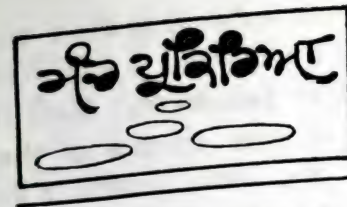 ਮੰਚ ਪ੍ਰਕਿਰਿਆ